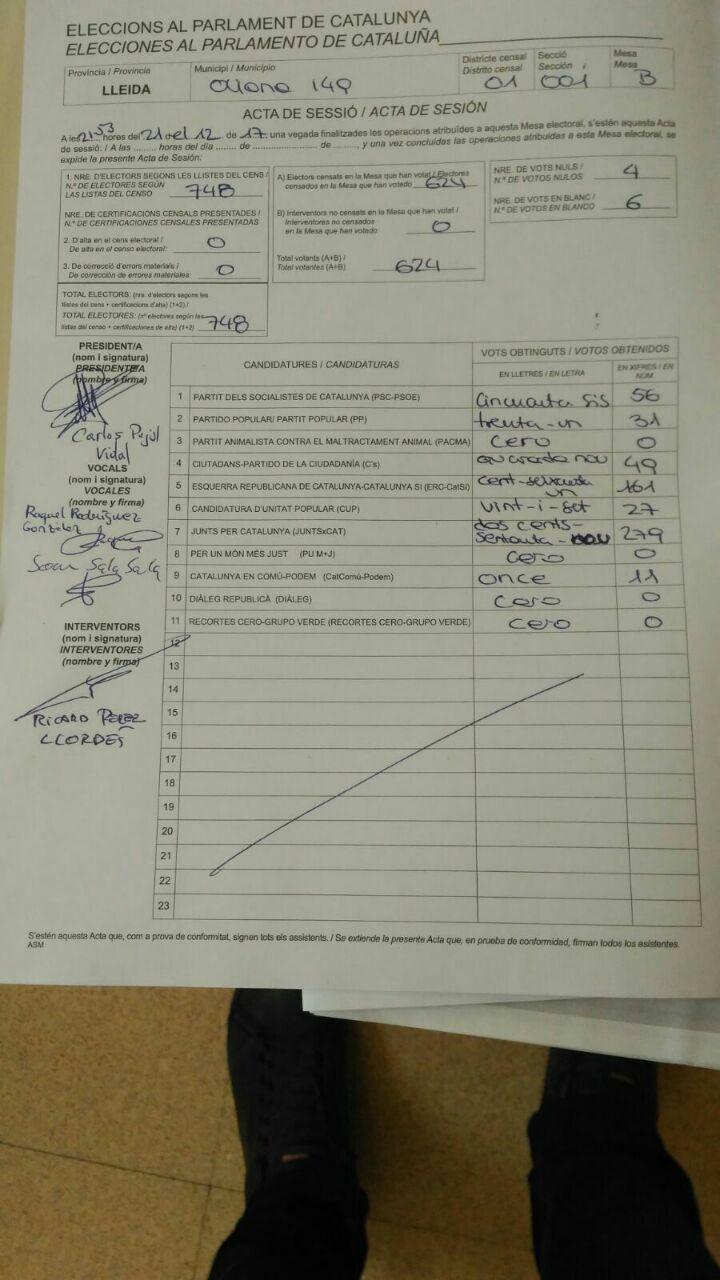 ELECCIONS AL PARLAMENT DE CATALUNYA
ELECCIONES AL PARLAMENTO DE CATALUÑA
Província / Provincia
LLEIDA
Municipi / Municipio
Oliana 149
Districte censal
Distrito censal
01
Secció
Sección
001
Mesa
Mesa
B
ACTA DE SESSIÓ / ACTA DE SESIÓN
A les 21:53 hores del 21 del 12 de 17, una vegada finalitzades les operacions atribuïdes a aquesta Mesa electoral, s'estén aquesta Acta
de sessió: / A las ......... horas del día ........ de .......................... de ........, y una vez concluidas las operaciones atribuidas a esta Mesa electoral, se
expide la presente Acta de Sesión:
1. NRE. D'ELECTORS SEGONS LES LLISTES DEL CENS /
N.º DE ELECTORES SEGÚN
LAS LISTAS DEL CENSO
748
NRE. DE CERTIFICACIONS CENSALS PRESENTADES /
N.º DE CERTIFICACIONES CENSALES PRESENTADAS
2. D'alta en el cens electoral /
De alta en el censo electoral:
0
3. De correcció d'errors materials /
De corrección de errores materiales:
0
TOTAL ELECTORS: (nre. d'electors segons les
llistes del cens + certificacions d'alta) (1+2) /
TOTAL ELECTORES: (nº electores según las
listas del censo + certificaciones de alta) (1+2)
748
A) Electors censats en la Mesa que han votat / Electores
censados en la Mesa que han votado
624
B) Interventors no censats en la Mesa que han votat /
Interventores no censados
en la Mesa que han votado
0
Total votants (A+B) /
Total votantes (A+B)
624
NRE. DE VOTS NULS /
N.º DE VOTOS NULOS
4
NRE. DE VOTS EN BLANC /
N.º DE VOTOS EN BLANCO
6
PRESIDENT/A
(nom i signatura)
PRESIDENTE/A
(nombre y firma)
Carlos Pujol
Vidal
VOCALS
(nom i signatura)
VOCALES
(nombre y firma)
Raquel Rodríguez
Gonzalez
Joan Sala Sala
INTERVENTORS
(nom i signatura)
INTERVENTORES
(nombre y firma)
RICARD PEREZ
LLORDÉS
CANDIDATURES / CANDIDATURAS
VOTS OBTINGUTS / VOTOS OBTENIDOS
EN LLETRES / EN LETRA
EN XIFRES / EN NÚM
1 PARTIT DELS SOCIALISTES DE CATALUNYA (PSC-PSOE) Cincuanta sis 56
2 PARTIDO POPULAR/ PARTIT POPULAR (PP) trenta-un 31
3 PARTIT ANIMALISTA CONTRA EL MALTRACTAMENT ANIMAL (PACMA) cero 0
4 CIUTADANS-PARTIDO DE LA CIUDADANÍA (C's) quaranta nou 49
5 ESQUERRA REPUBLICANA DE CATALUNYA-CATALUNYA SÍ (ERC-CatSí) cent-seixanta un 161
6 CANDIDATURA D'UNITAT POPULAR (CUP) vint-i-set 27
7 JUNTS PER CATALUNYA (JUNTSxCAT) dos cents-sentanta-nou 279
8 PER UN MÓN MÉS JUST (PU M+J) cero 0
9 CATALUNYA EN COMÚ-PODEM (CatComú-Podem) once 11
10 DIÀLEG REPUBLICÀ (DIÀLEG) cero 0
11 RECORTES CERO-GRUPO VERDE (RECORTES CERO-GRUPO VERDE) cero 0
12
13
14
15
16
17
18
19
20
21
22
23
S'estén aquesta Acta que, com a prova de conformitat, signen tots els assistents. / Se extiende la presente Acta que, en prueba de conformidad, firman todos los asistentes.
ASM